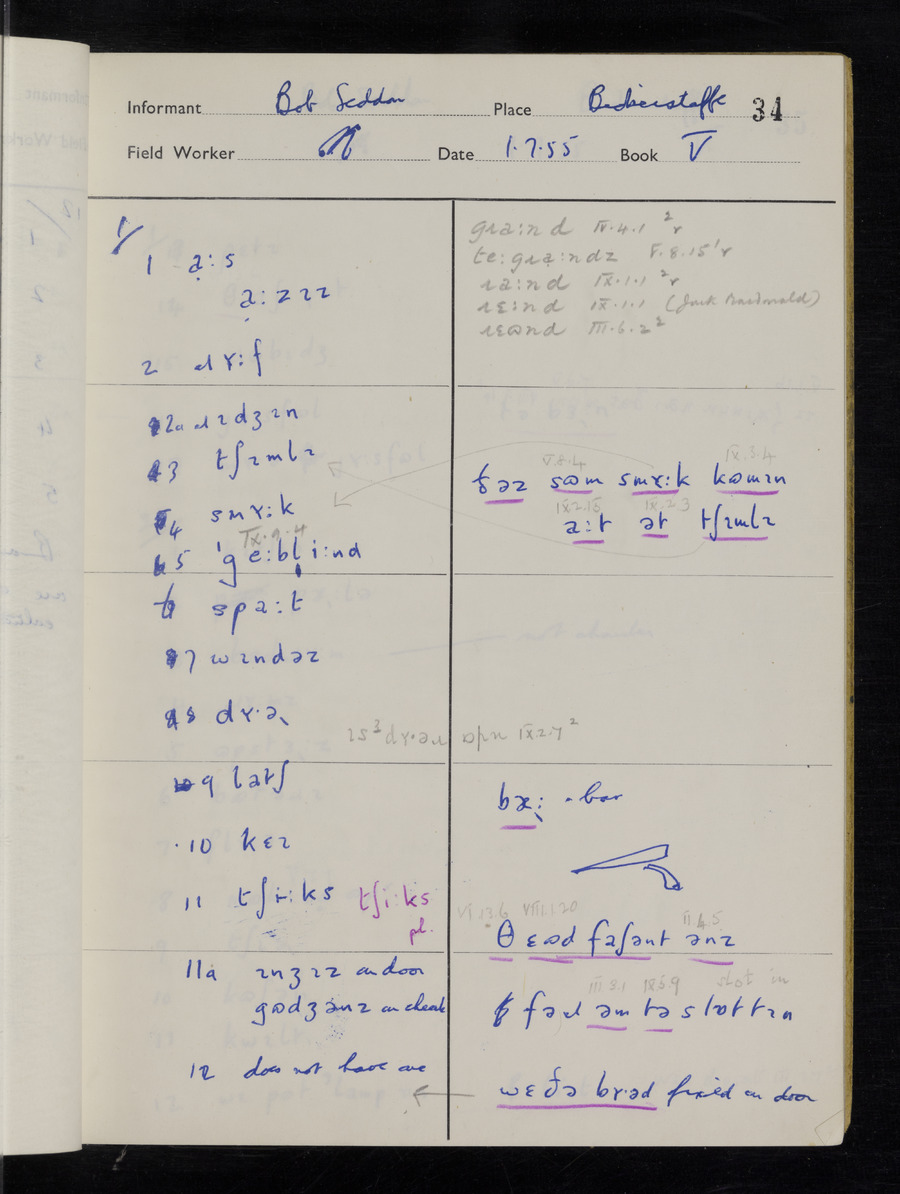 Informant Bob Seddon Place Bickerstaffe 34
Field Worker Date 1.7.55 Book V
1/
1 a̤:s
a̤:zɪz
2
2a
3 tʃɪmlɪ
4 smɤ:k
IX.9.4
5 'ge:bl̩ i:nd
6 spa:t
7 wɪndəz
8 dɤ·ə
9 latʃ
10 kɛɪ
11 tʃi:ks tʃi:ks
pl.
11a ɪnʒɪz on door
gɷdʒənz on cheek
12 does not have one
gɹa:nd IV.4.1 ² r
te: gɹa̤:ndz V.8.15 ¹ r
ɹa:nd IX.1.1 ² r
ɹɛ:nd IX.1.1
ɹɛɷnd III.6.2 ²
V.8.4 IX.3.4
ðəz sɷm smɤ:k kɷmɪn
IX.2.15 IX.2.3
a:t ət tʃɪmlɪ
ɪs ³ dɤ·əɹ ɒpn IX.2.7 ²
bæ: - bar
VI.13.6 VIII.1.20 II.4.5
θ ɛɷd faʃənt ənz
III.3.1 IX.5.9 slot in
fəɹ əm tə slɒttɪn
wɛ ðə bɤ·əd fixed on door